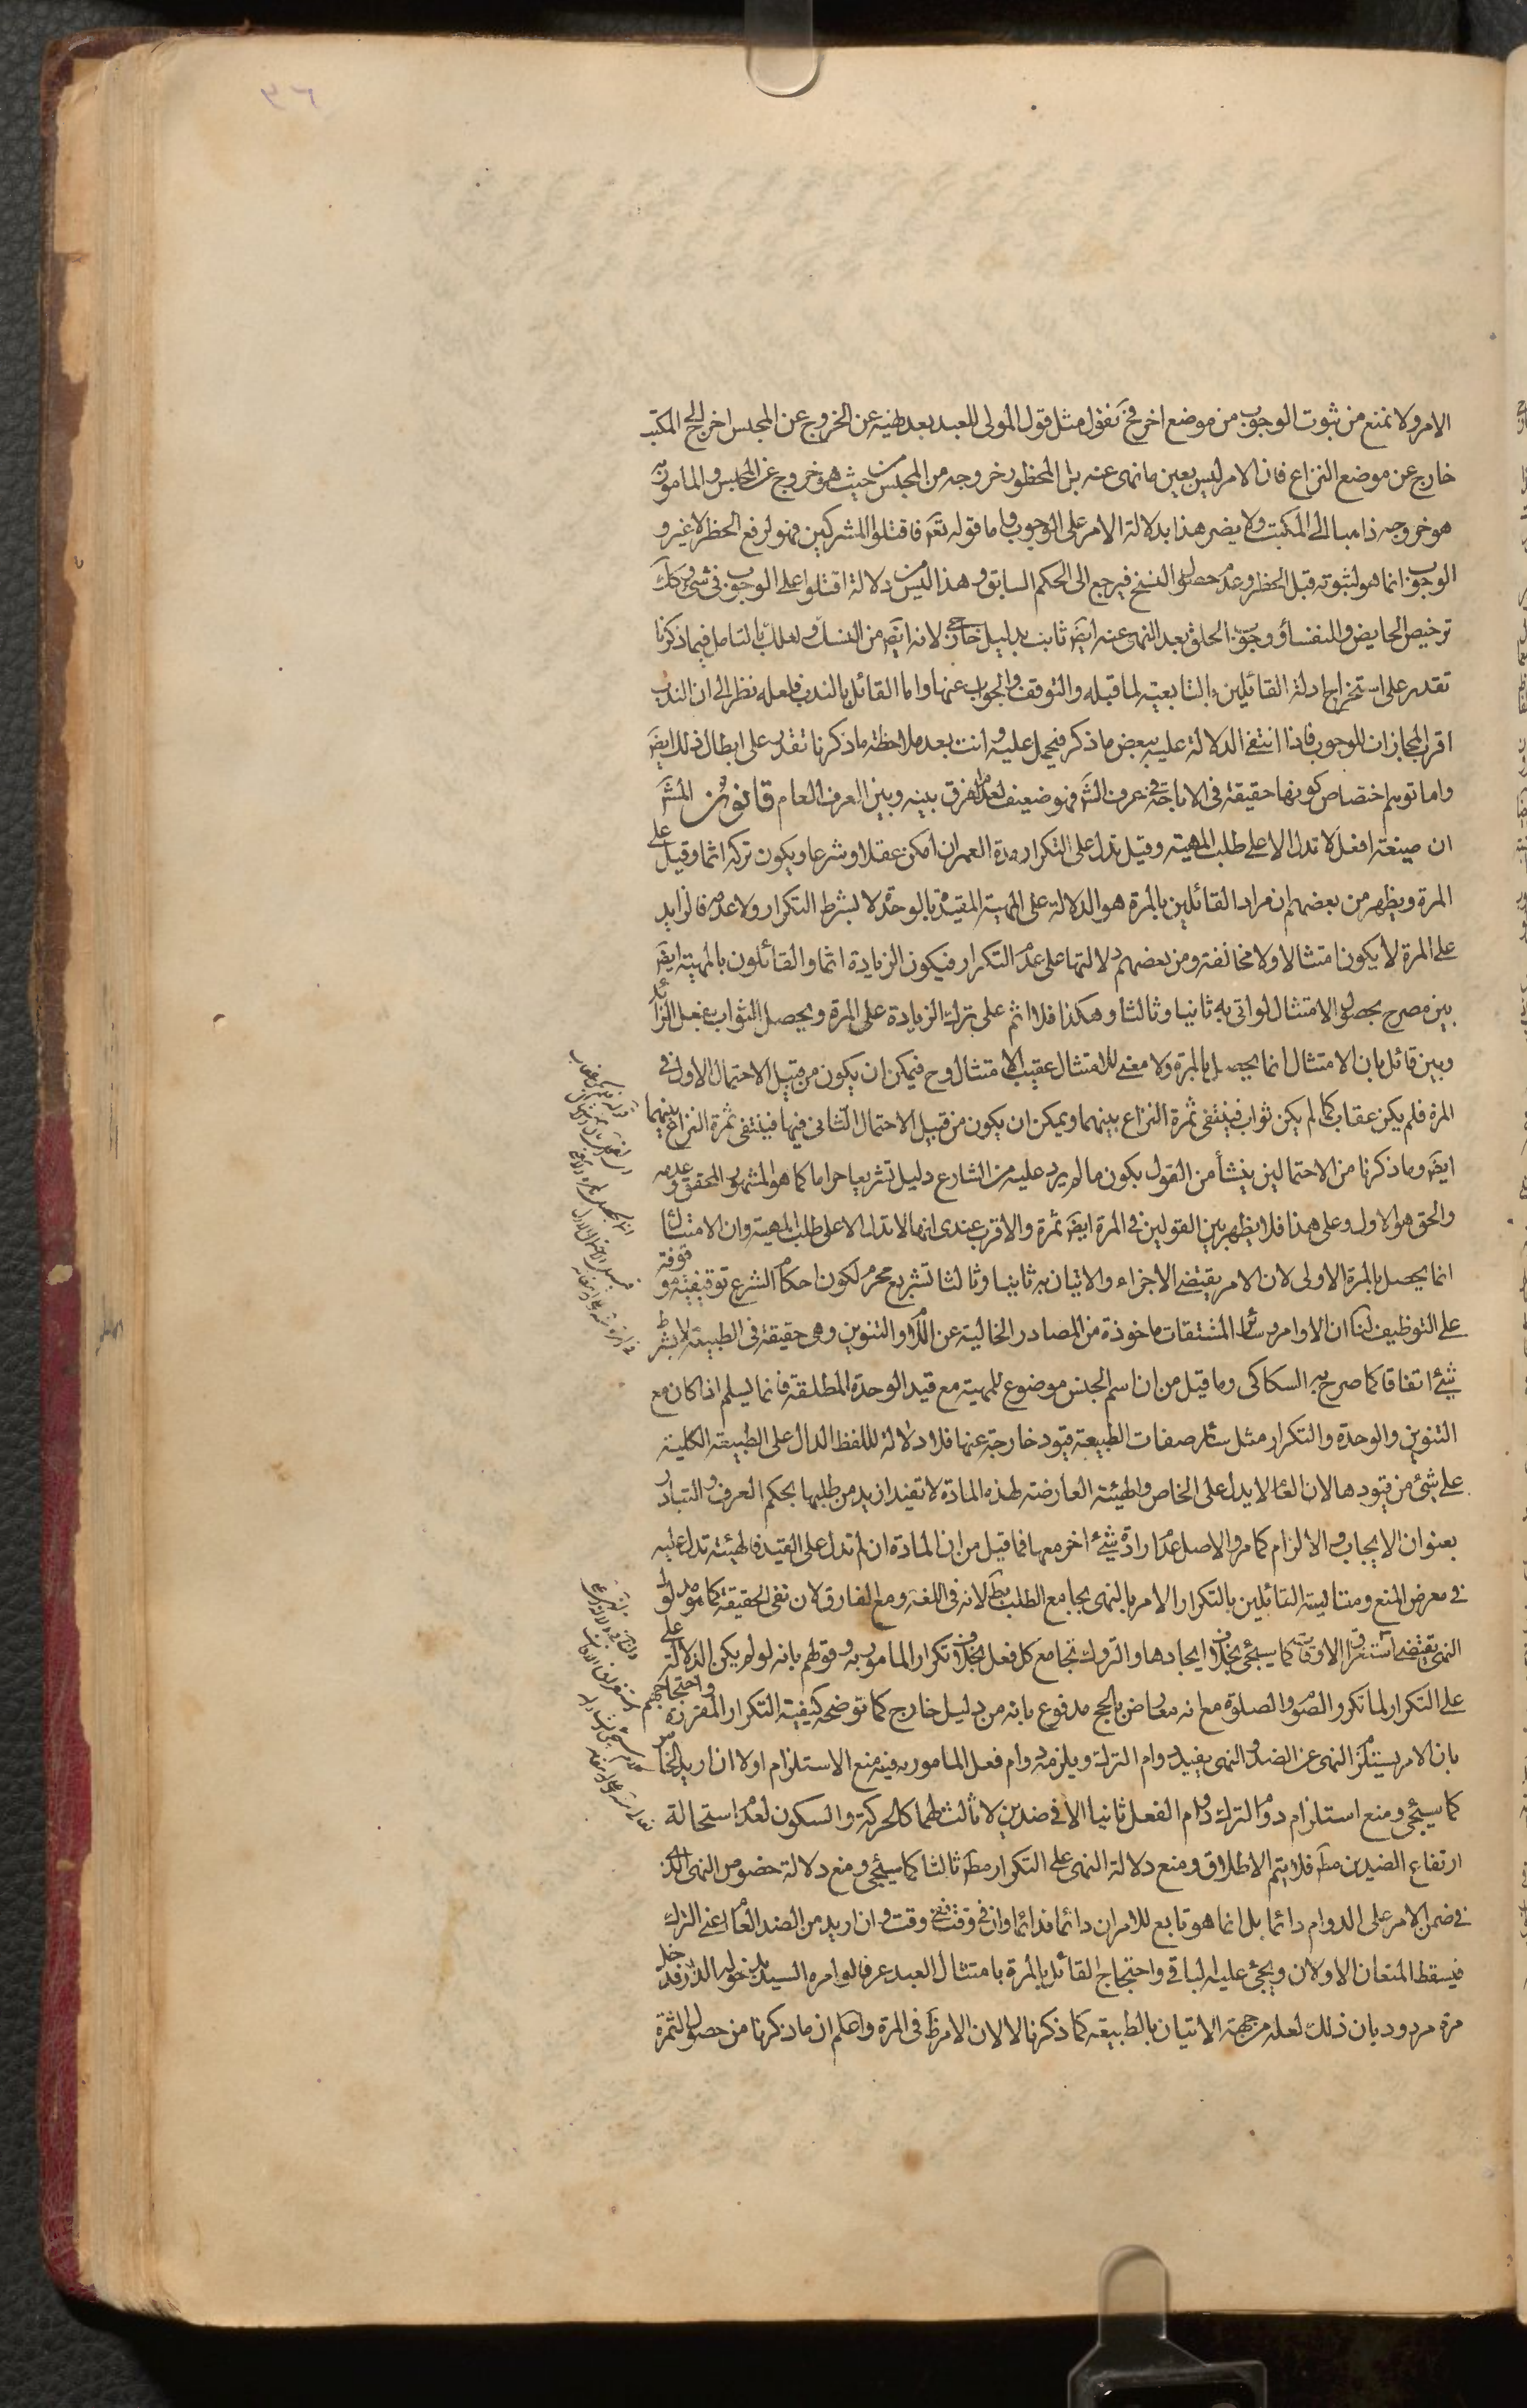 الامر ولا نمنع من ثبوت الوجوب من موضع اخر فح نقول مثل قول المولى للعبد بعد نهيه عن الخروج عن المجلس اخرج الى المكتب
خارج عن موضع النزاع فان الامر ليس بعين ما نهى عنه بل المحظور خروجه من المجلس من حيث هو خروج عن المجلس والمامور به
هو خروجه ذاهبا الى المكتب ولا يضر هذا بدلالة الامر على الوجوب واما قوله تعم فاقتلوا المشركين فهو لرفع الحظر لا غير و
الوجوب انما هو لثبوته قبل الحظر وعدم حصول النسخ فيرجع الى الحكم السابق وهذا ليس من دلالة اقتلوا على الوجوب في شئ وكك
ترخيص الحايض والنفساء ووجوب الحلق بعد النهى عنه ايضَ ثابت بدليل خارجي لانه ايضَ من النسك ولعلك بالتامل فيما ذكرنا
تقدر على استخراج ادلة القائلين بالتابعية لما قبله والتوقف والجواب عنها واما القائل بالندب فلعله نظر الى ان الندب
اقرب المجازات للوجوب فاذا انتفى الدلالة عليه ببعض ما ذكر فيحمل عليه وانت بعد ملاحظة ما ذكرنا تقدر على ابطال ذلك ايضَ
واما توهم اختصاص كونها حقيقة في الاباحة في عرف الشرَ فهو ضعيف لعدم الفرق بينه وبين العرف العام قانون المشَ
ان صيغة افعل لا تدل الا على طلب المهية وقيل تدل على التكرار مدة العمر ان امكن عقلا وشرعا ويكون تركه اثما وقيل على
المرة ويظهر من بعضهم ان مراد القائلين بالمرة هو الدلالة على المهية المقيدة بالوحدة لا بشرط التكرار ولا عدمه فالزايد
على المرة لا يكون امتثالا ولا مخالفة ومن بعضهم دلالتها على عدم التكرار فيكون الزيادة اثما والقائلون بالمهية ايضَ
بين مصرح بحصول الامتثال لو اتى به ثانيا وثالثا وهكذا فلا اثم على ترك الزيادة على المرة ويحصل الثواب بفعل الزائد
وبين قائل بان الامتثال انما يحصل بالمرة ولا معنى للامتثال عقيب الامتثال وح فيمكن ان يكون من قبيل الاحتمال الاول في
المرة فلم يكن عقاب كما لم يكن ثواب فينتفى ثمرة النزاع بينهما ويمكن ان يكون من قبيل الاحتمال الثانى فيها فينتفى ثمرة النزاع بينهما
ايضَ وما ذكرنا من الاحتمالين ينشأ من القول بكون ما لم يرد عليه من الشارع دليل تشريعا حراما كما هو المشهور المحقق وعدمه
والحق هو الاول وعلى هذا فلا يظهر بين القولين في المرة ايضَ ثمرة والاقرب عندى انها لا تدل الا على طلب المهية وان الامتثال
انما يحصل بالمرة الاولى لان الامر يقتضى الاجزاء والاتيان به ثانيا وثالثا تشريع محرم لكون احكام الشرع توقيفية موقوفة
على التوظيف لنا ان الاوامر وسائر المشتقات ماخوذة من المصادر الخالية عن اللام والتنوين وهى حقيقة في الطبيعة لا بشرط
شئ اتفاقا كما صرح به السكاكى وما قيل من ان اسم الجنس موضوع للمهية مع قيد الوحدة المطلقة فانما يسلم اذا كان مع
التنوين والوحدة والتكرار مثل سائر صفات الطبيعة قيود خارجة عنها فلا دلالة للفظ الدال على الطبيعة الكلية
على شئ من قيودها لان العام لا يدل على الخاص والهيئة العارضة لهذه المادة لا تفيد ازيد من طلبها بحكم العرف والتبادر
بعنوان الايجاب والالزام كما مر والاصل عدم ارادة شئ اخر معها فما قيل من ان المادة ان لم تدل على القيد فالهيئة تدل عليه
في معرض المنع ومقايسة القائلين بالتكرار الامر بالنهى بجامع الطلب بط لانه في اللغة ومع الفارق لان نفى الحقيقة كما هو مدلول
النهى يقتضى استغراق الاوقات كما سيجئ بخلاف ايجادها والتروك تجامع كل فعل بخلاف تكرار المامور به وقولهم بانه لو لم يكن الدلالة
على التكرار لما تكرر الصوم والصلوة مع انه معارض بالحج مدفوع بانه من دليل خارج كما توضحه كيفية التكرار المقررة واحتجاجهم
بان الامر يستلزم النهى عن الضد والنهى يفيد دوام الترك ويلزمه دوام فعل المامور به فيه منع الاستلزام اولا ان اريد الخاص
كما سيجئ ومنع استلزام دوام الترك دوام الفعل ثانيا الا في ضدين لا ثالث لهما كالحركة والسكون لعدم استحالة
ارتفاع الضدين مط فلا يتم الاطلاق ومنع دلالة النهى على التكرار مط ثالثا كما سيجئ ومنع دلالة خصوص النهى الذى
في ضمن الامر على الدوام دائما بل انما هو تابع للامر ان دائما فدائما وان في وقت ففى وقت وان اريد من الضد العام اعنى الترك
فيسقط المنعان الاولان ويجئ عليه الباقى واحتجاج القائل بالمرة بامتثال العبد عرفا لو امره السيد بدخول الدار فدخل
مرة مردود بان ذلك لعله من جهة الاتيان بالطبيعة كما ذكرنا لا لان الامر ظ في المرة واعلم ان ما ذكرنا من حصول الثمرة